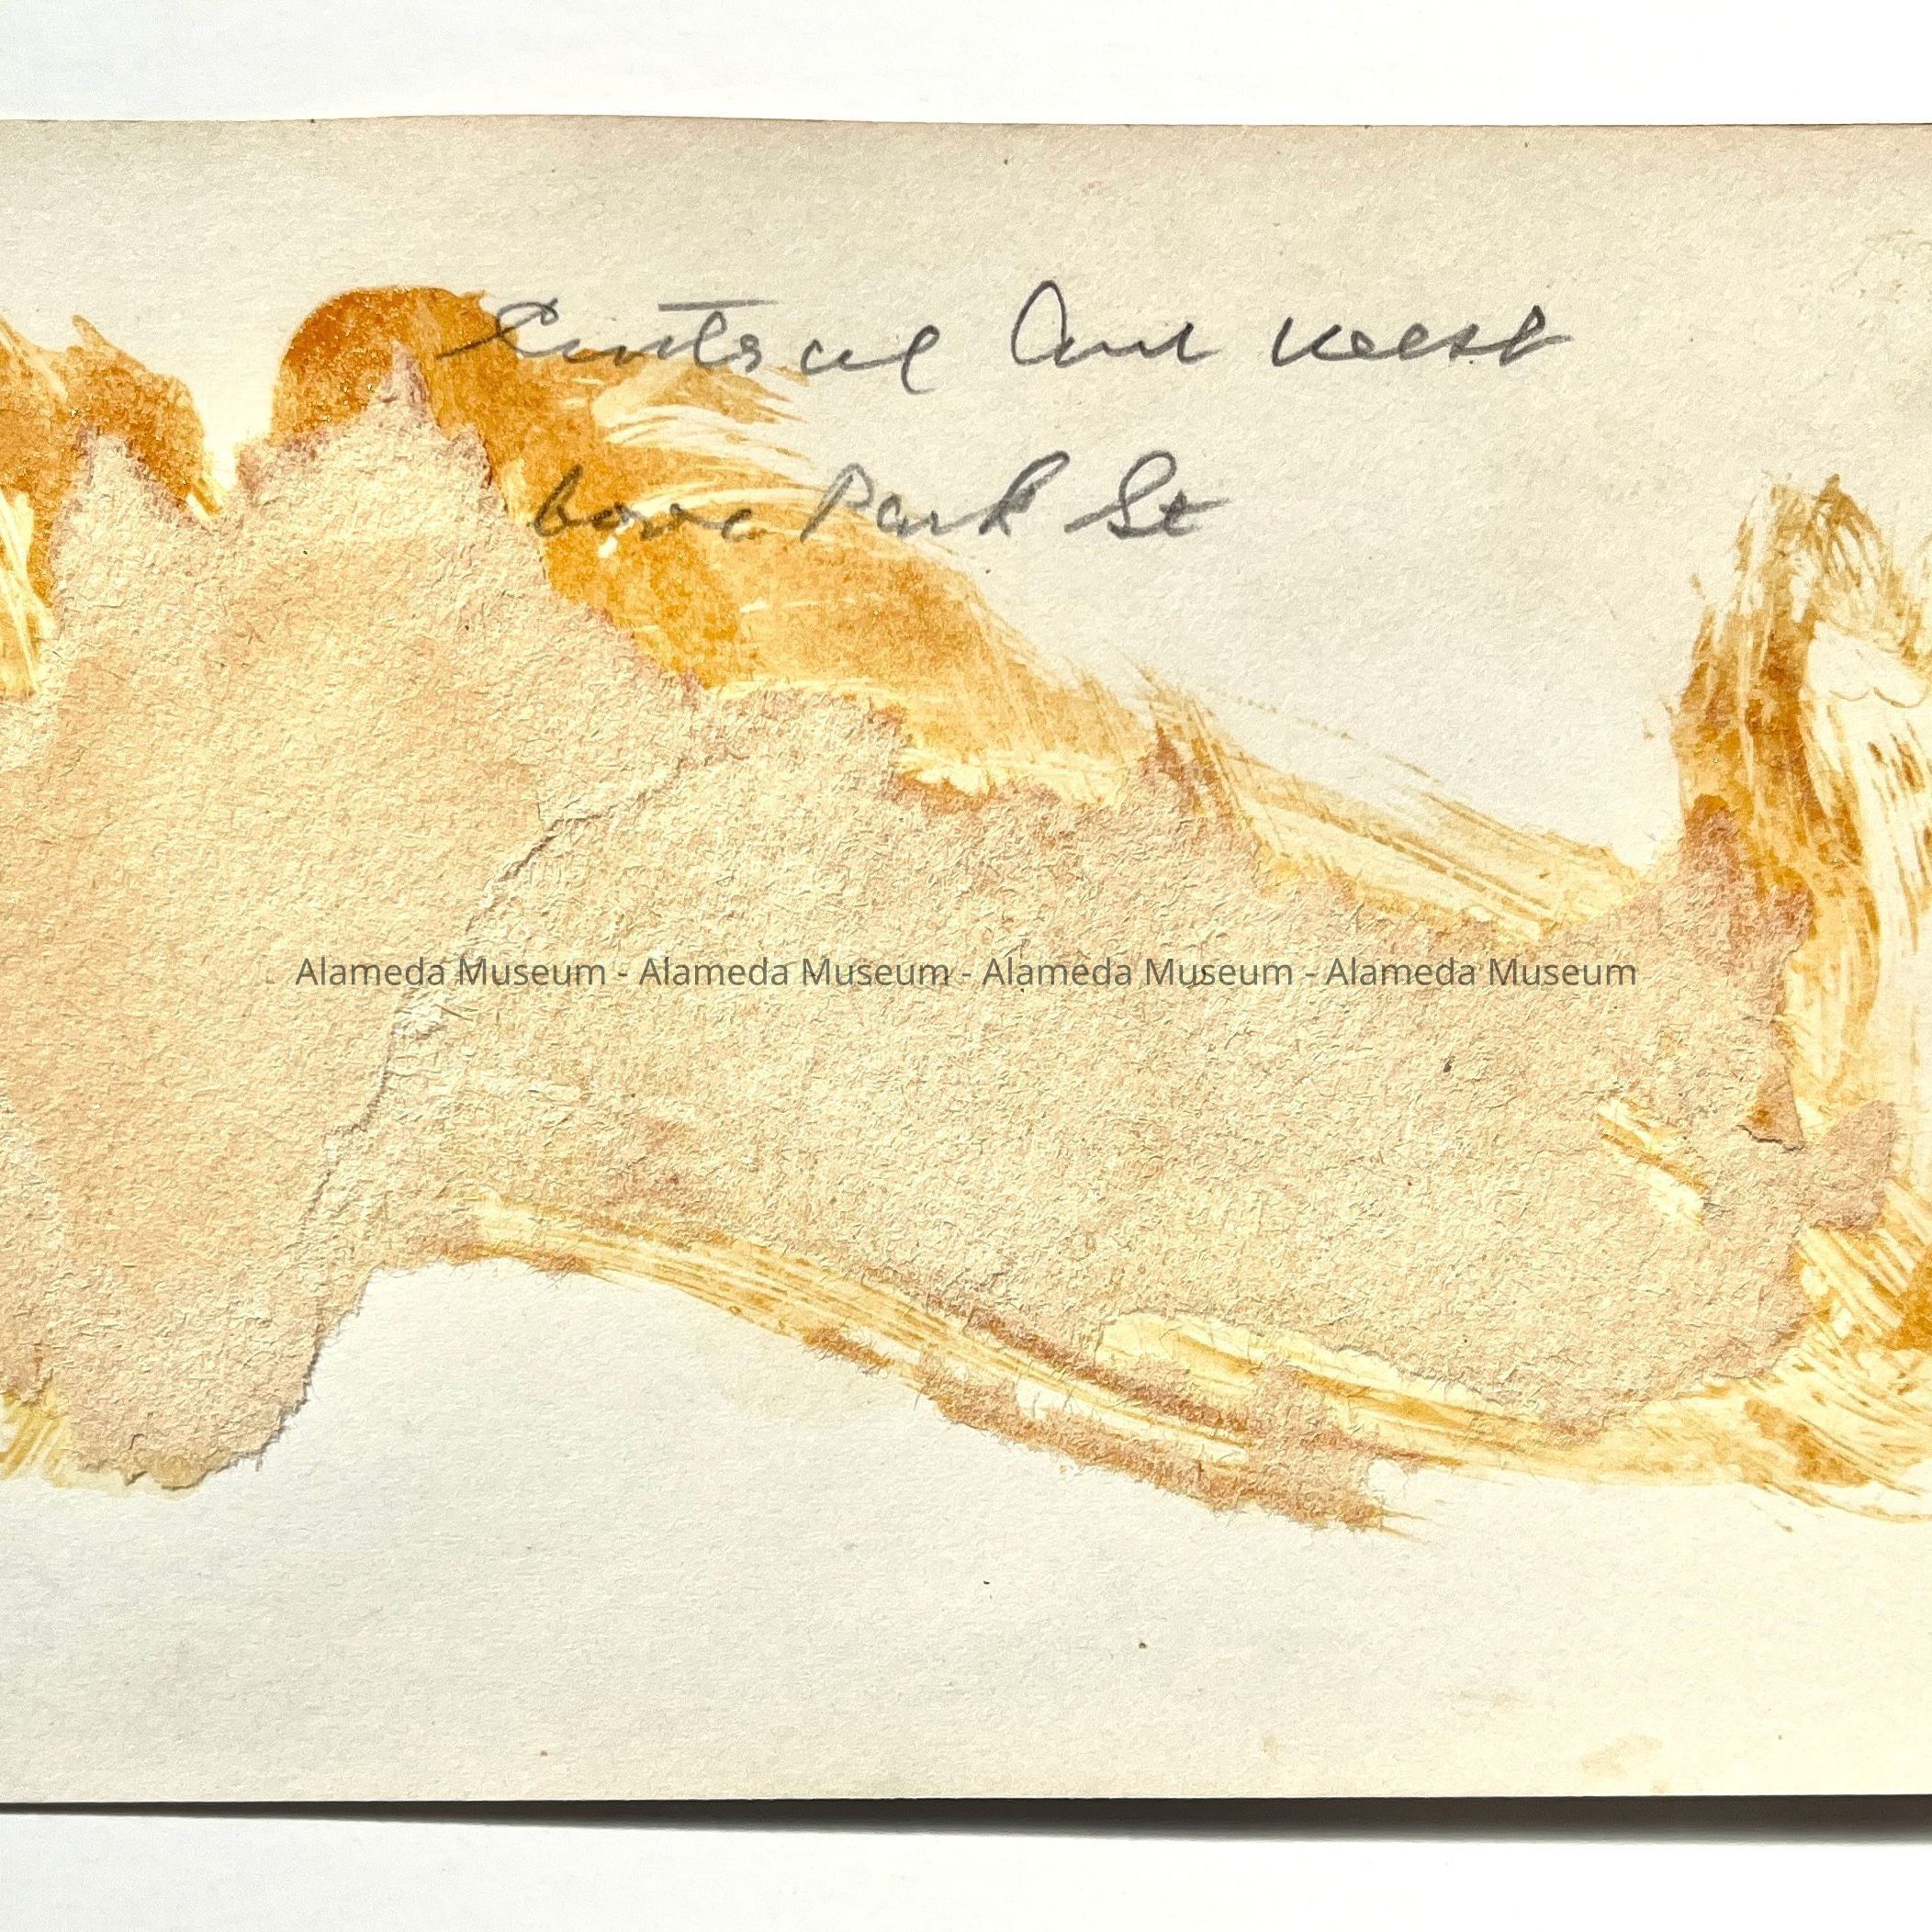 Central Ave West
bove Park St
Alameda Museum - Alameda Museum - Alameda Museum - Alameda Museum